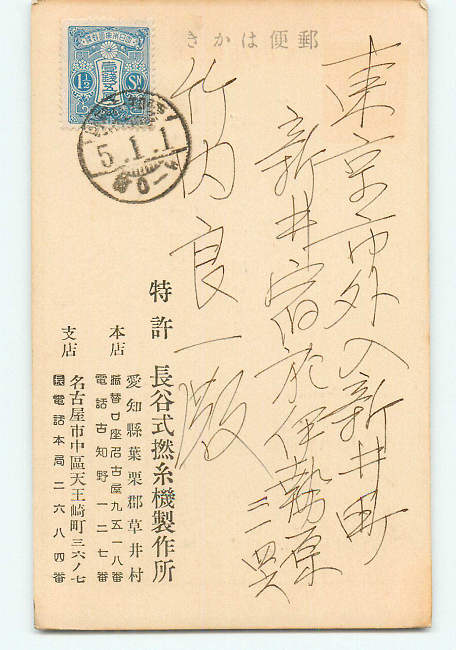 郵便はかき
1½ Sn
5.1.1
東京市外入新井町
新井宿 伊勢原
竹内良一殿
特許 長谷式撚糸機製作所
愛知縣葉栗郡草井村
本店 振替口座名古屋九五一八番
電話古知野一二七番
支店 名古屋市中區天王崎町三六ノ七
電話本局二六八四番